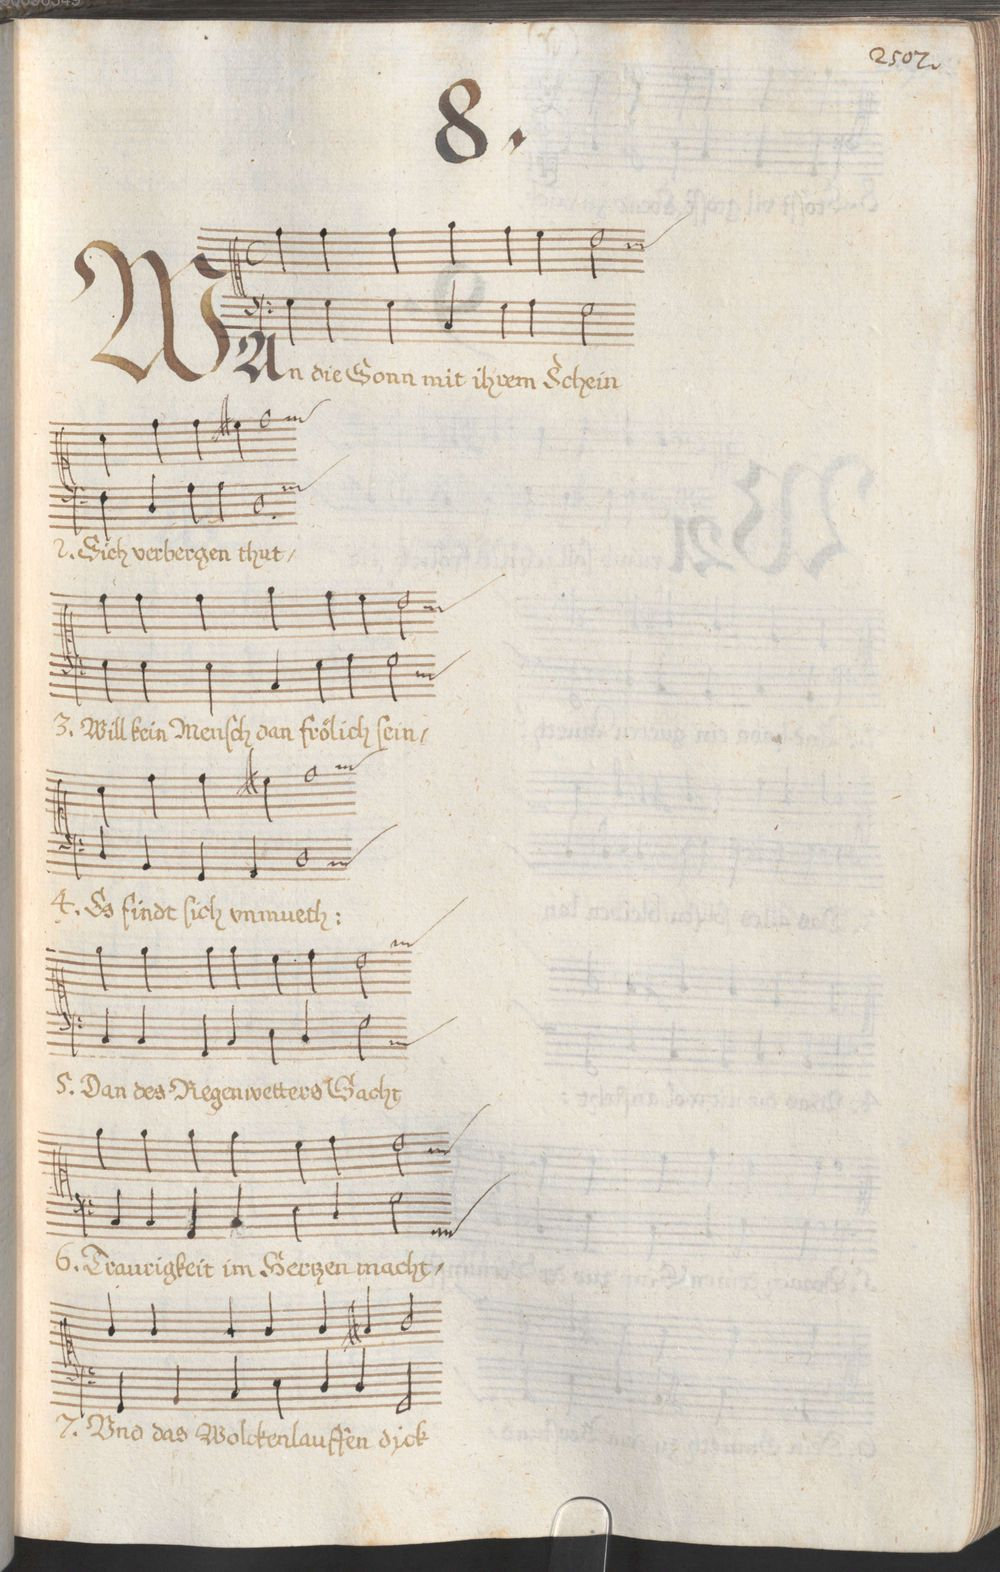 2507.
8.
WAn die Sonn mit ihrem Schein
2. Sich verbergen thut/
3. Will kein Mensch dan frölich sein/
4. Es findt sich vnmueth:
5. Dan des Regenwetters Gacht
6. Traurigkeit im Hertzen macht/
7. Vnd das Wolckenlauffen dick